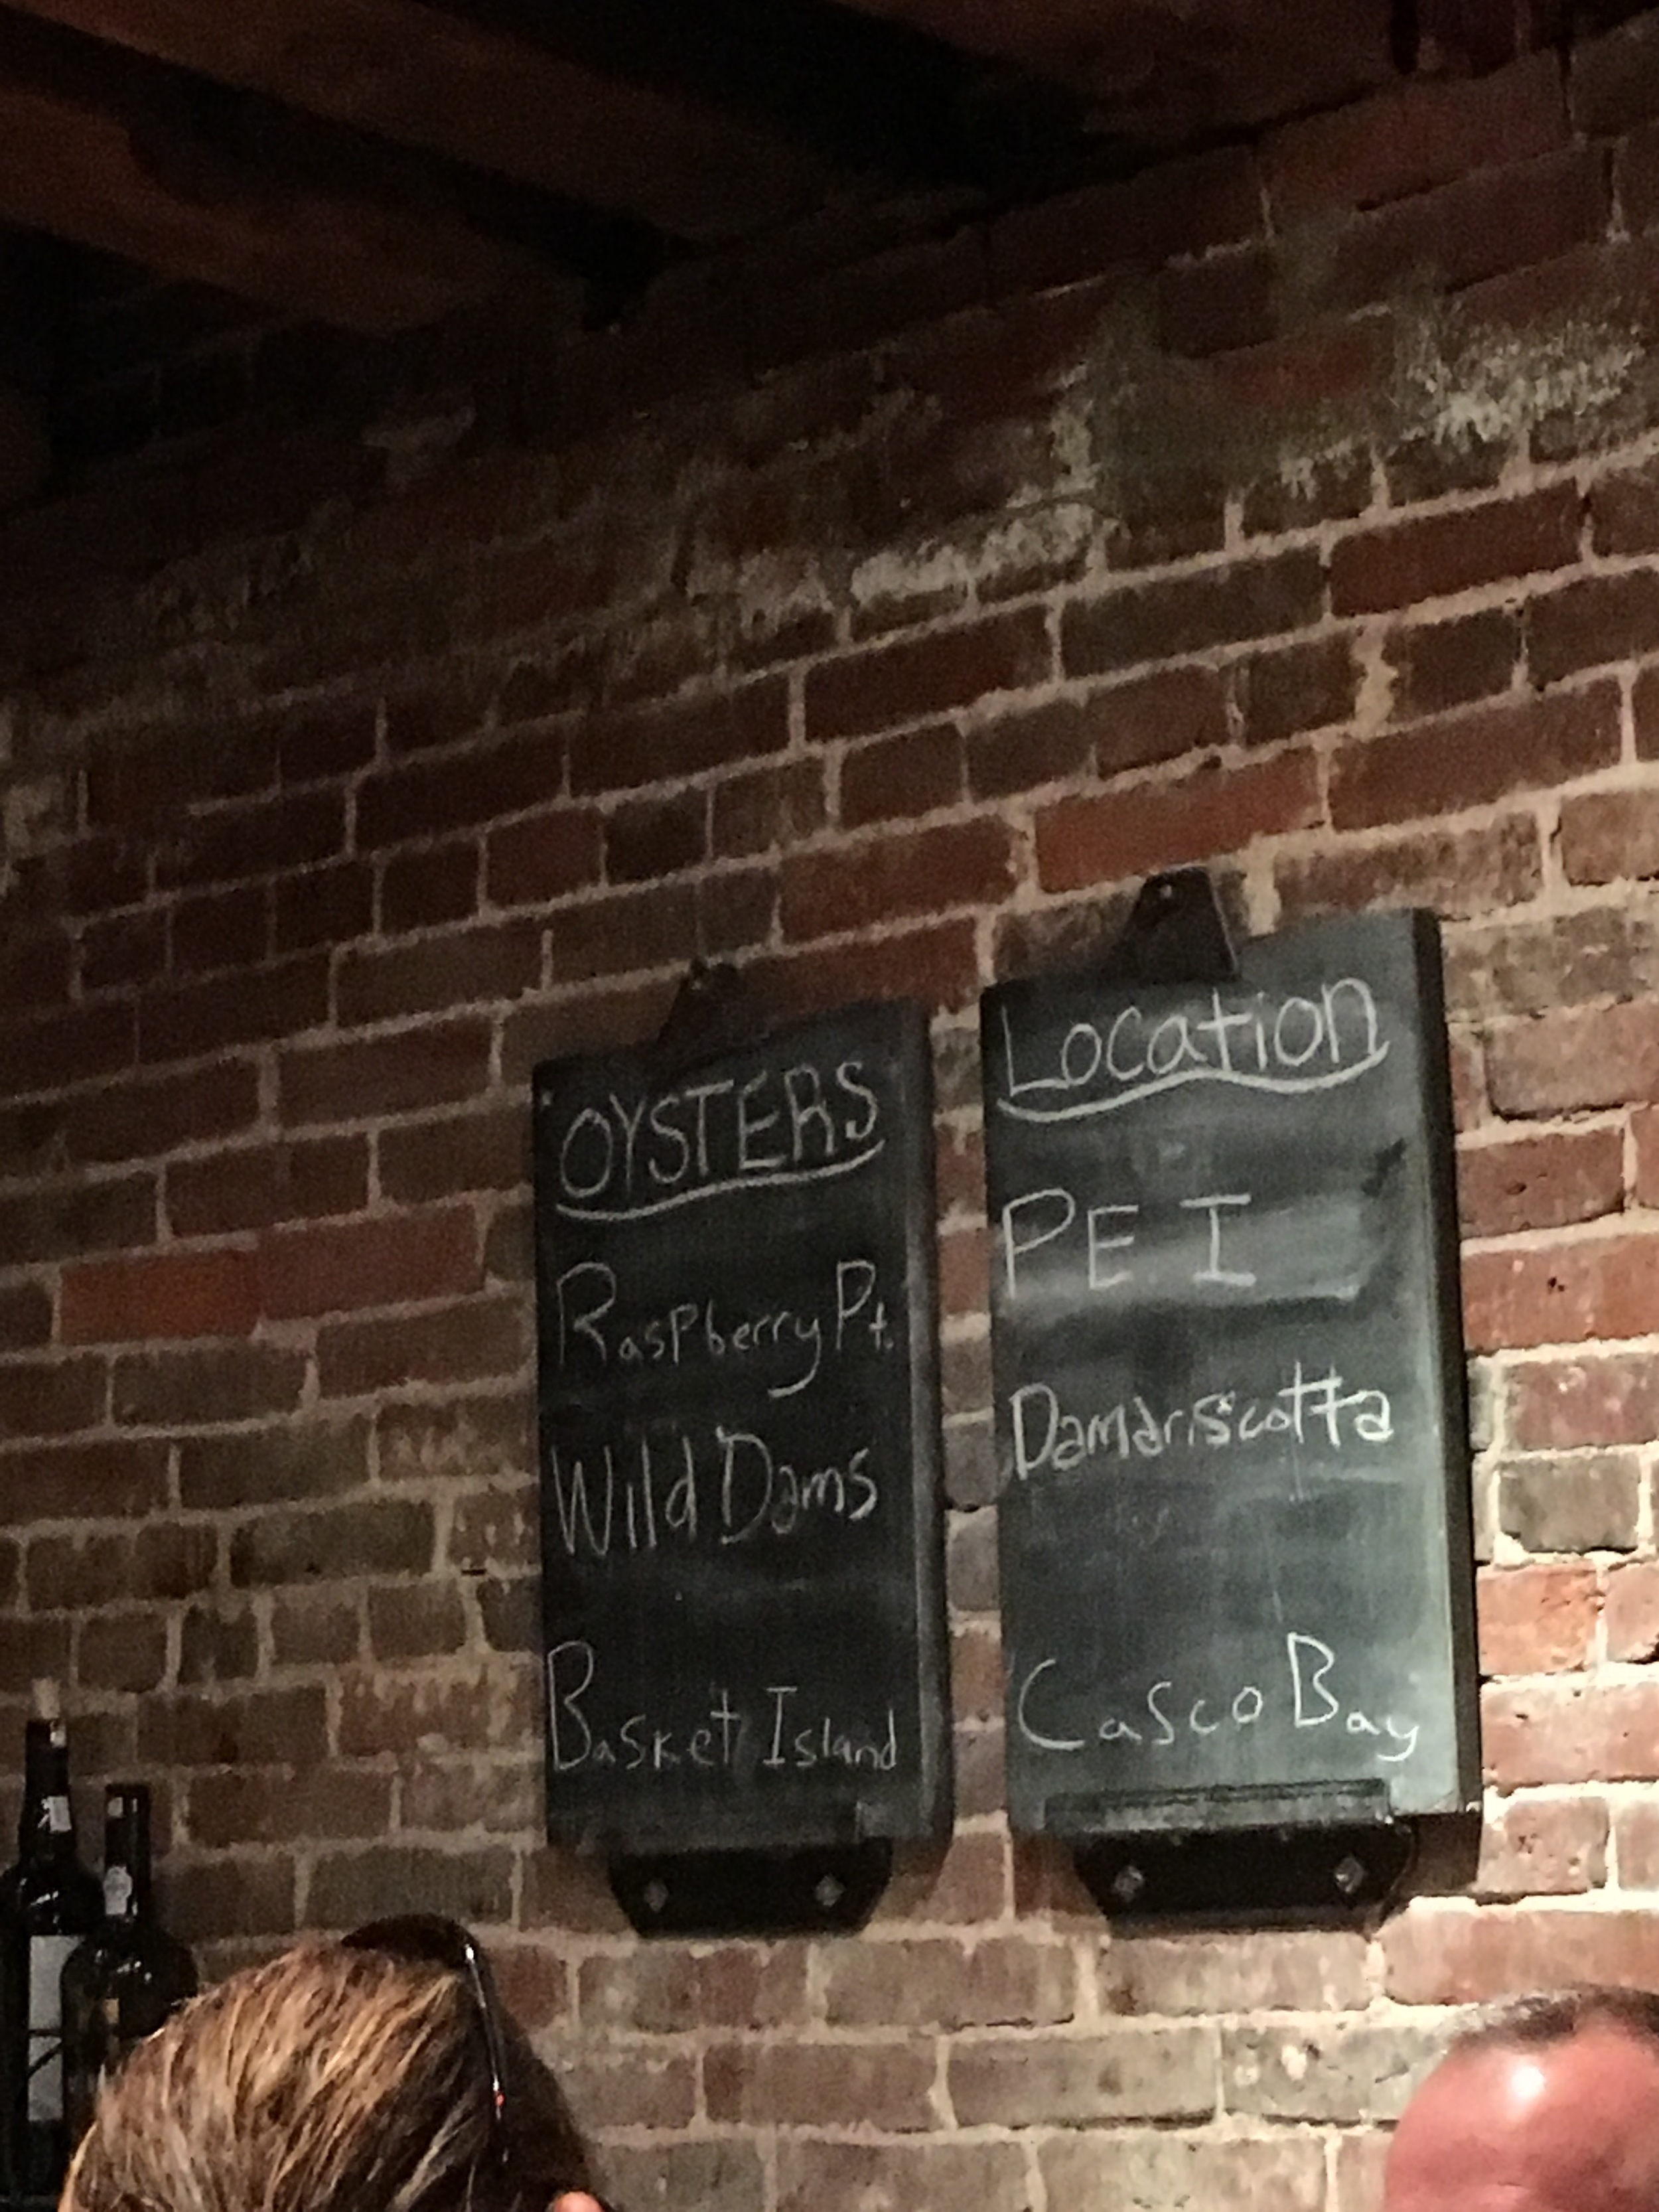 OYSTERS
Raspberry Pt.
Wild Dams
Basket Island
Location
PEI
Damariscotta
Casco Bay